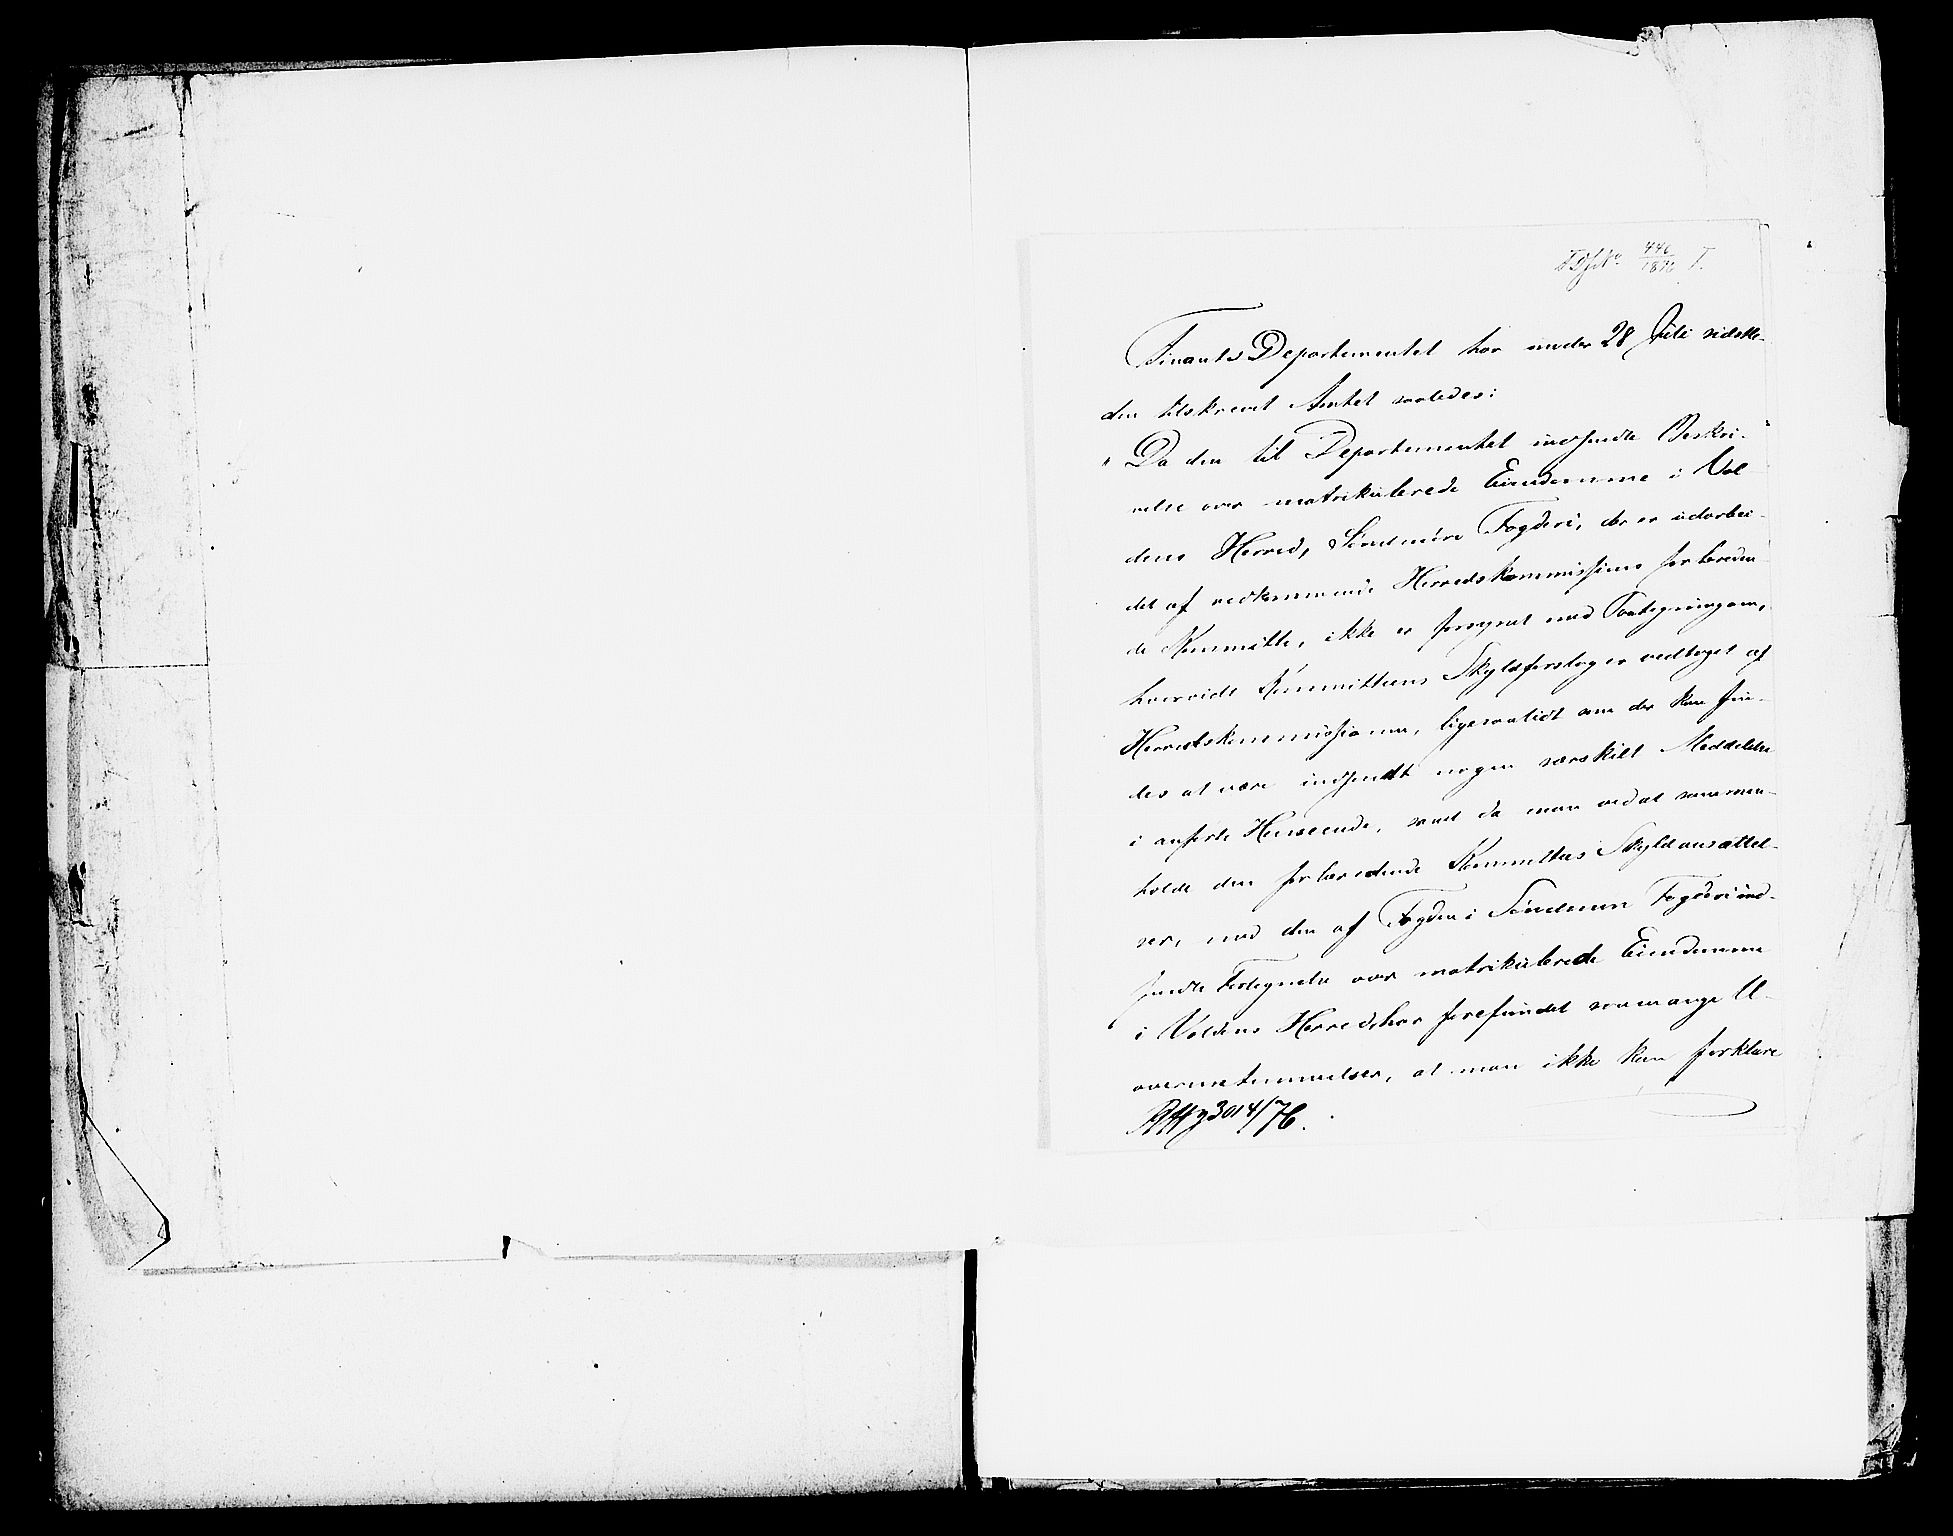 446/1876 I.
Finants Departementet har under 28 Juli sidstle-
den tilskrevet Amtet saaledes:
"Da den til Departementet indsendte Beskri-
velse over matrikulerede Eiendomme i Vol-
dens Herred, Söndmöre Fogderi, der er udarbei-
det af vedkommende Herredskommissions forbereden-
de Kommitte, ikke er forsynet med Paategning om,
hvorvidt Kommitteens Skyldforslag er vedtaget af
Herredskommissionen, ligesaalidt som der kan fin-
des at være indsendt nogen særskilt Meddelelse
i anførte Henseende, samt da man ved at sammen-
holde den forberedende Kommittees Skyldansættel-
ser, med den af Fogden i Söndmör Fogderi ind-
sendte Fortegnelse over matrikulerede Eiendomme
i Voldens Herred har forefundet saa mange U-
overensstemmelser, at man ikke kan forklare
3014/76.